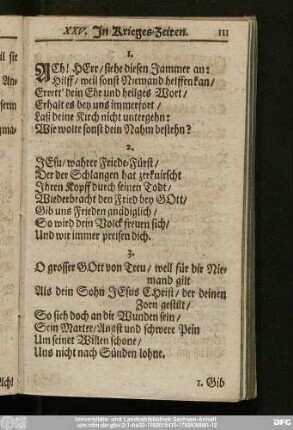 XXV. In Krieges-Zeiten. 111
1.
ACh! HErr / siehe diesen Jammer an:
Hilff / weil sonst Niemand helffen kan /
Errett' dein Ehr und heilges Wort /
Erhalt es bey uns immerfort /
Laß deine Kirch nicht untergehn:
Wie wolte sonst dein Nahm bestehn?
2.
JEsu / wahrer Friede-Fürst /
Der der Schlangen hat zerknirscht
Ihren Kopff durch seinen Todt /
Wiederbracht den Fried bey GOtt /
Gib uns Frieden gnädiglich /
So wird dein Volck freuen sich /
Und wir immer preisen dich.
3.
O grosser GOtt von Treu / weil für dir Nie-
mand gilt
Als dein Sohn JEsus CHrist / der deinen
Zorn gestilt /
So sieh doch an die Wunden sein /
Sein Marter / Angst und schwere Pein
Um seinet Willen schone /
Uns nicht nach Sünden lohne.
1. Gib
Universitäts- und Landesbibliothek Sachsen-Anhalt
DFG